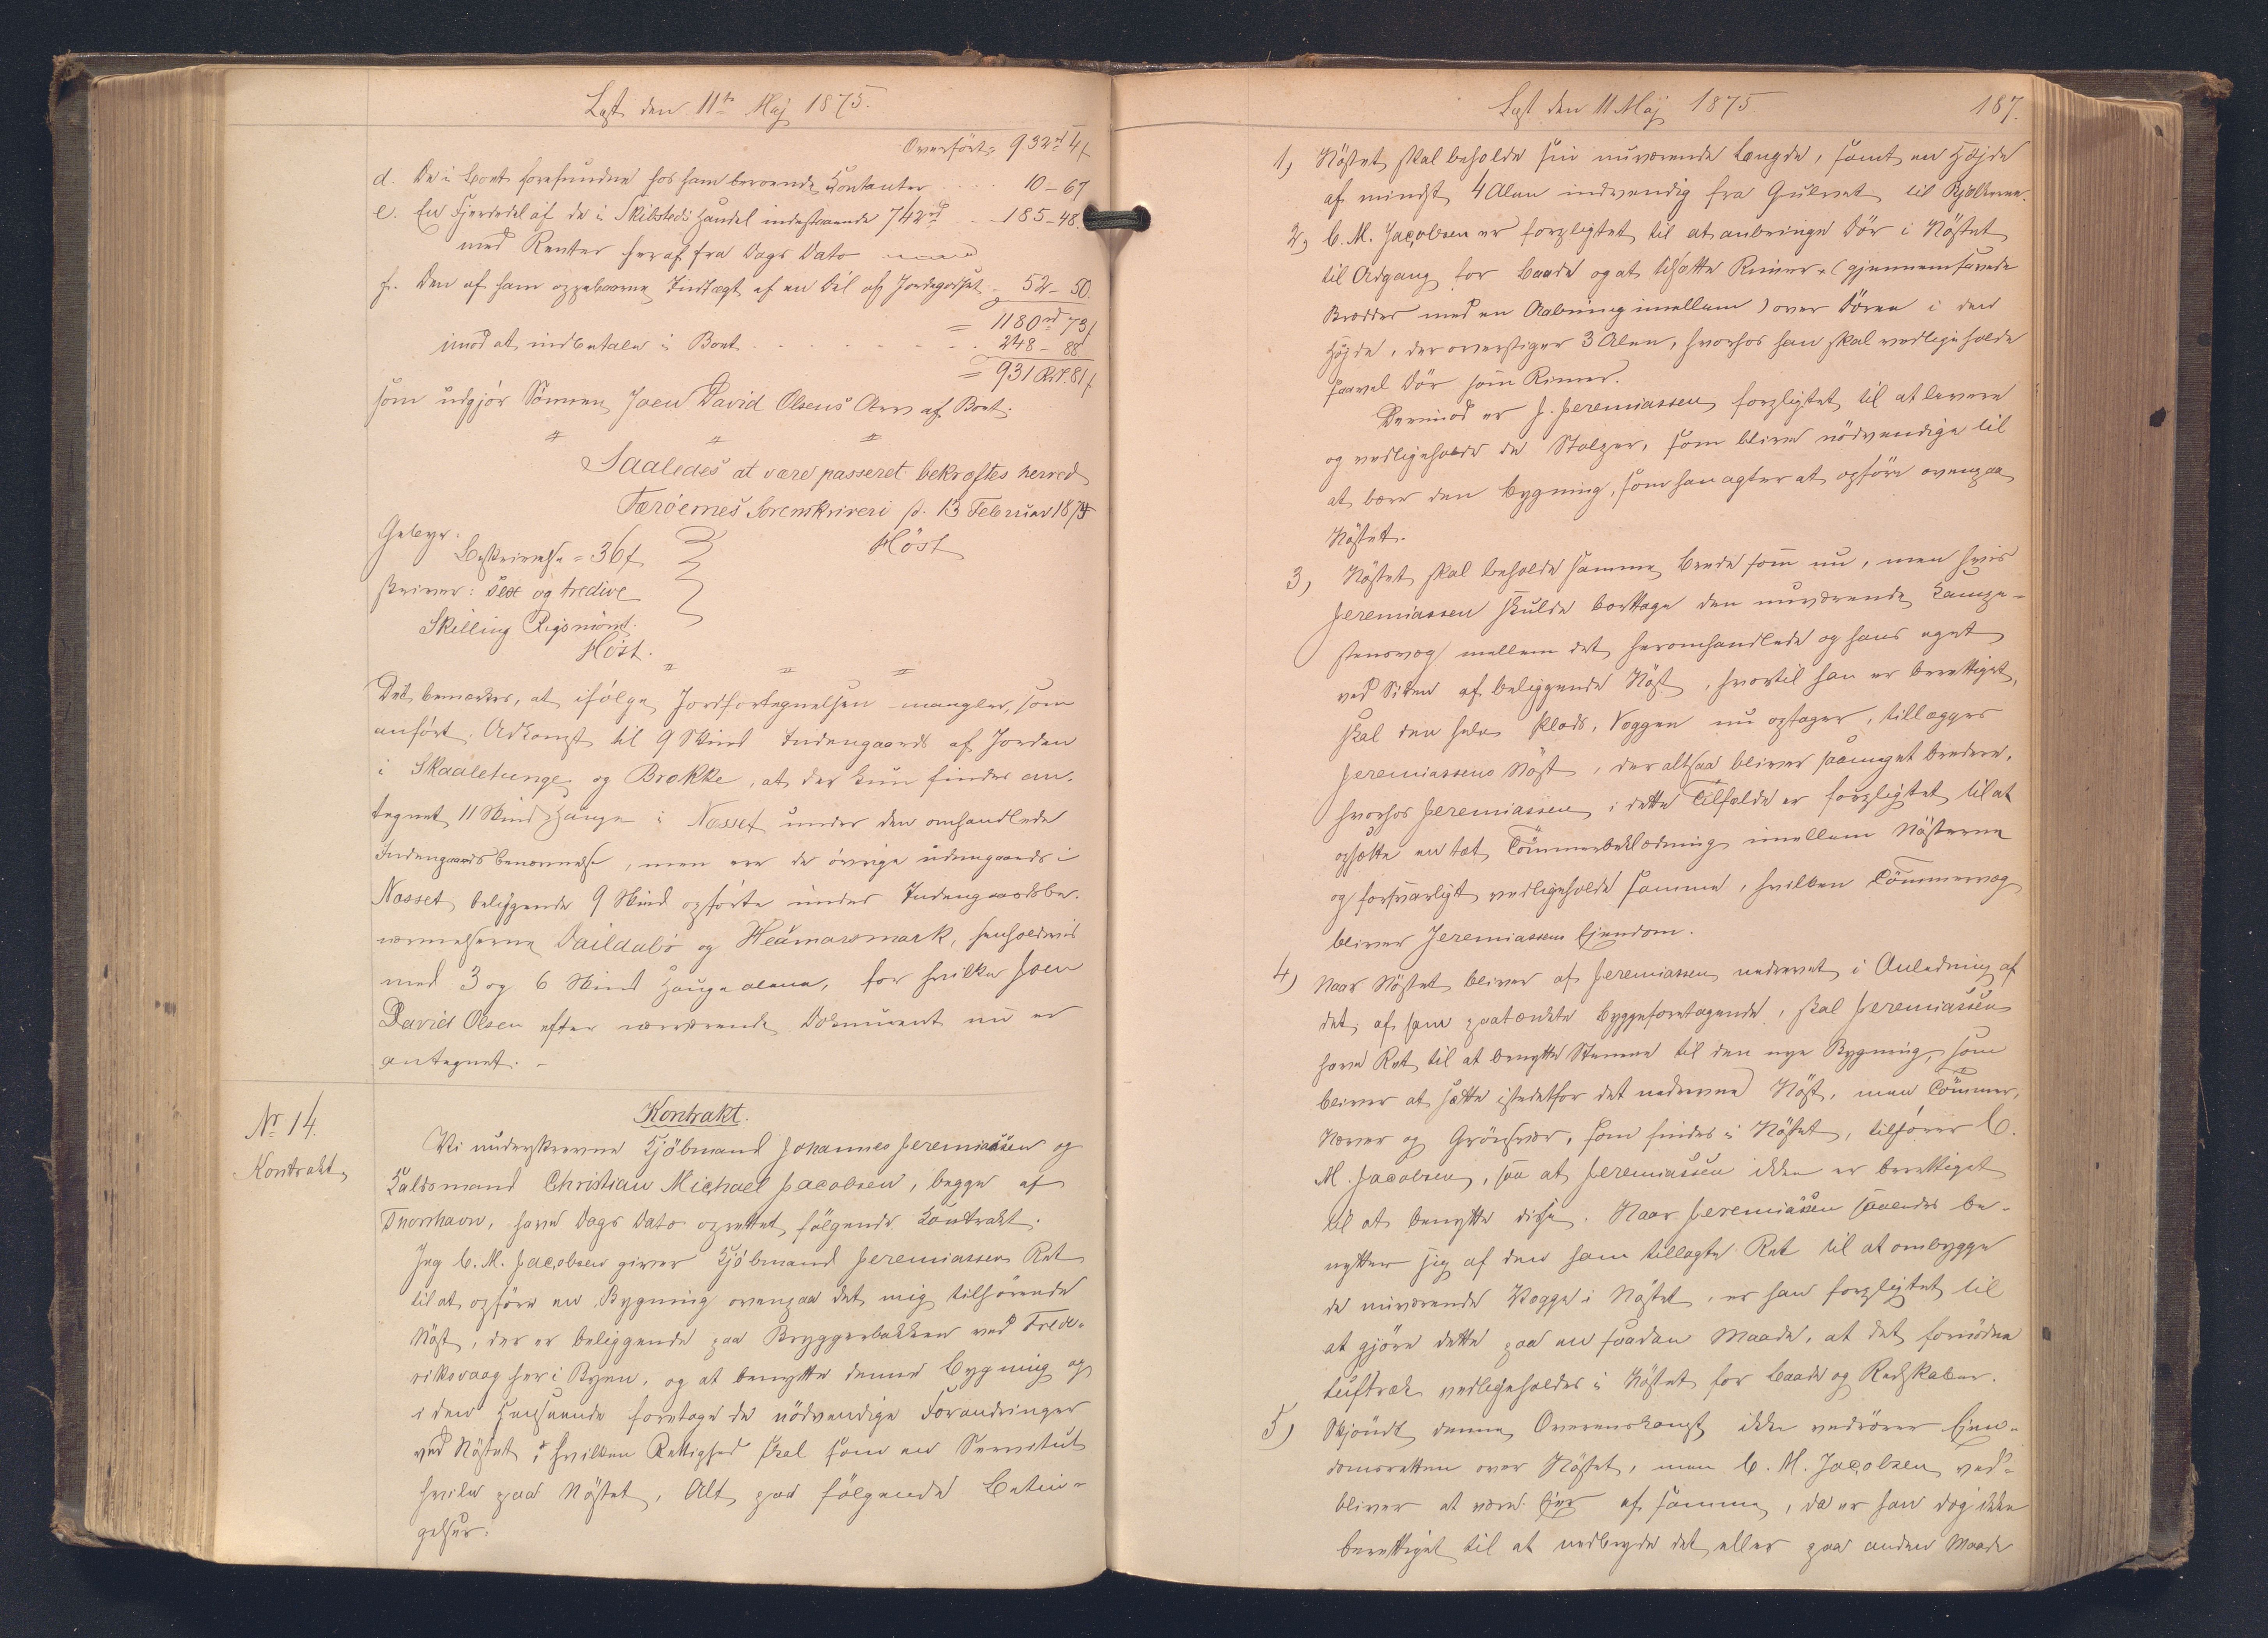 Læst den 11te Maj 1875.
Overført = 932rd 4s
d. De i Boet forefundne hos ham beroende Contanter . . . . 10 - 67
e. En Fjerdedel af de i Skibsteds Handel indestaaende 742rd . . 185 - 48.
med Renter heraf fra Dags Dato
f. Den af ham oppebaarne Indtægt af en Del af Jordegodset - 52 - 50.
= 1180rd 73s
imod at indbetale i Boet . . . . . . . . 248 - 88
= 931 Rd. 81s
som udgjør Sønnen Joen David Olsens Arv af Boet.
Saaledes at være passeret bekræftes herved
Færøernes Sorenskriveri p. 13 Februar 1875
Høst
Gebyr.
Beskrivelse = 36s
skriver: Sex og tredive
Skilling Rigsmønt.
Høst.
Det bemærkes, at ifølge Jordfortegnelsen mangler, som
anført, Adkomst til 9 Skind Indengaards af Jorden
i Skaaletunge og Brekke, at der kun findes an-
tegnet 11 Skind Hauge i Næsset under den omhandlede
Indengaardsbenævnelse, men ere de øvrige udengaards i
Nesset beliggende 9 Skind opførte under Indengaardsbe-
nævnelserne Daildabø og Heamarsmark, henholdsvis
med 3 og 6 Skind Hauge alene, for hvilke Joen
David Olsen efter nærværende Dokument nu er
antegnet. -
Nr 14.
Kontrakt
Kontrakt.
Vi underskrevne Kjøbmand Johannes Jeremiassen og
Kuldsmand Christian Michael Jacobsen, begge af
Thorshavn, have Dags Dato oprettet følgende Contrakt.
Jeg C. M. Jacobsen giver Kjøbmand Jeremiassen Ret
til at opføre en Bygning ovenpaa det mig tilhørende
Nøst, der er beliggende paa Bryggerbakken ved Frede-
riksvaag her i Byen, og at benytte denne Bygning og
i den Henseende foretage de nødvendige Forandringer
ved Nøstet; hvilken Rettighed skal som en Servitut
hvile paa Nøstet, Alt paa følgende Betin-
gelser:
Læst den 11 Maj 1875
187.
1, Nøstet skal beholde sin nuværende Længde, samt en Højde
af mindst 4 Alen indvendig fra Gulvet til Bjælkerne.
2, C. M. Jacobsen er forpligtet til at anbringe Dør i Nøstet
til Adgang for Baade og at tilsætte Rimer (gjennemsavede
Brædder med en Aabning imellem) over Døren i den
Højde, der overstiger 3 Alen, hvorhos han skal vedligeholde
saavel Dør som Rimer.
Derimod er J. Jeremiassen forpligtet til at levere
og vedligeholde de Stolper, som blive nødvendige til
at bære den Bygning, som han agter at opføre ovenpaa
Nøstet.
3, Nøstet skal beholde samme Brede som nu, men hvis
Jeremiassen skulde borttage den nuværende Kampe-
stensvæg mellem det heromhandlede og hans eget
ved Siden af beliggende Nøst, hvortil han er berettiget,
skal den hele Plads, Væggen nu optager, tillægges
Jeremiassens Nøst, der altsaa bliver saameget bredere,
hvorhos Jeremiassen i dette Tilfælde er forpligtet til at
opsætte en tæt Tømmerbeklædning imellem Nøsterne
og forsvarligt vedligeholde samme, hvilken Tømmervæg
bliver Jeremiassens Ejendom.
4) Naar Nøstet bliver af Jeremiassen nedrevet i Anledning af
det af ham paatænkte Byggeforetagende, skal Jeremiassen
have Ret til at benytte Stenene til den nye Bygning, som
bliver at sætte istedetfor det nedrevne Nøst, men Tømmer,
Næver og Grønsvær, som findes i Nøstet, tilhører C.
M. Jacobsen, saa at Jeremiassen ikke er berettiget
til at benytte disse. Naar Jeremiassen saaledes be-
nytter sig af den ham tillagte Ret til at ombygge
de nuværende Vægge i Nøstet, er han forpligtet til
at gjøre dette paa en saadan Maade, at det fornødne
Lufttræk vedligeholdes i Nøstet for Baade og Redskaber.
5) Skjøndt denne Overenskomst ikke vedrører Ejen-
domsretten over Nøstet, men C. M. Jacobsen ved-
bliver at være Ejer af samme, da er han dog ikke
berettiget til at nedbryde det eller paa anden Maade